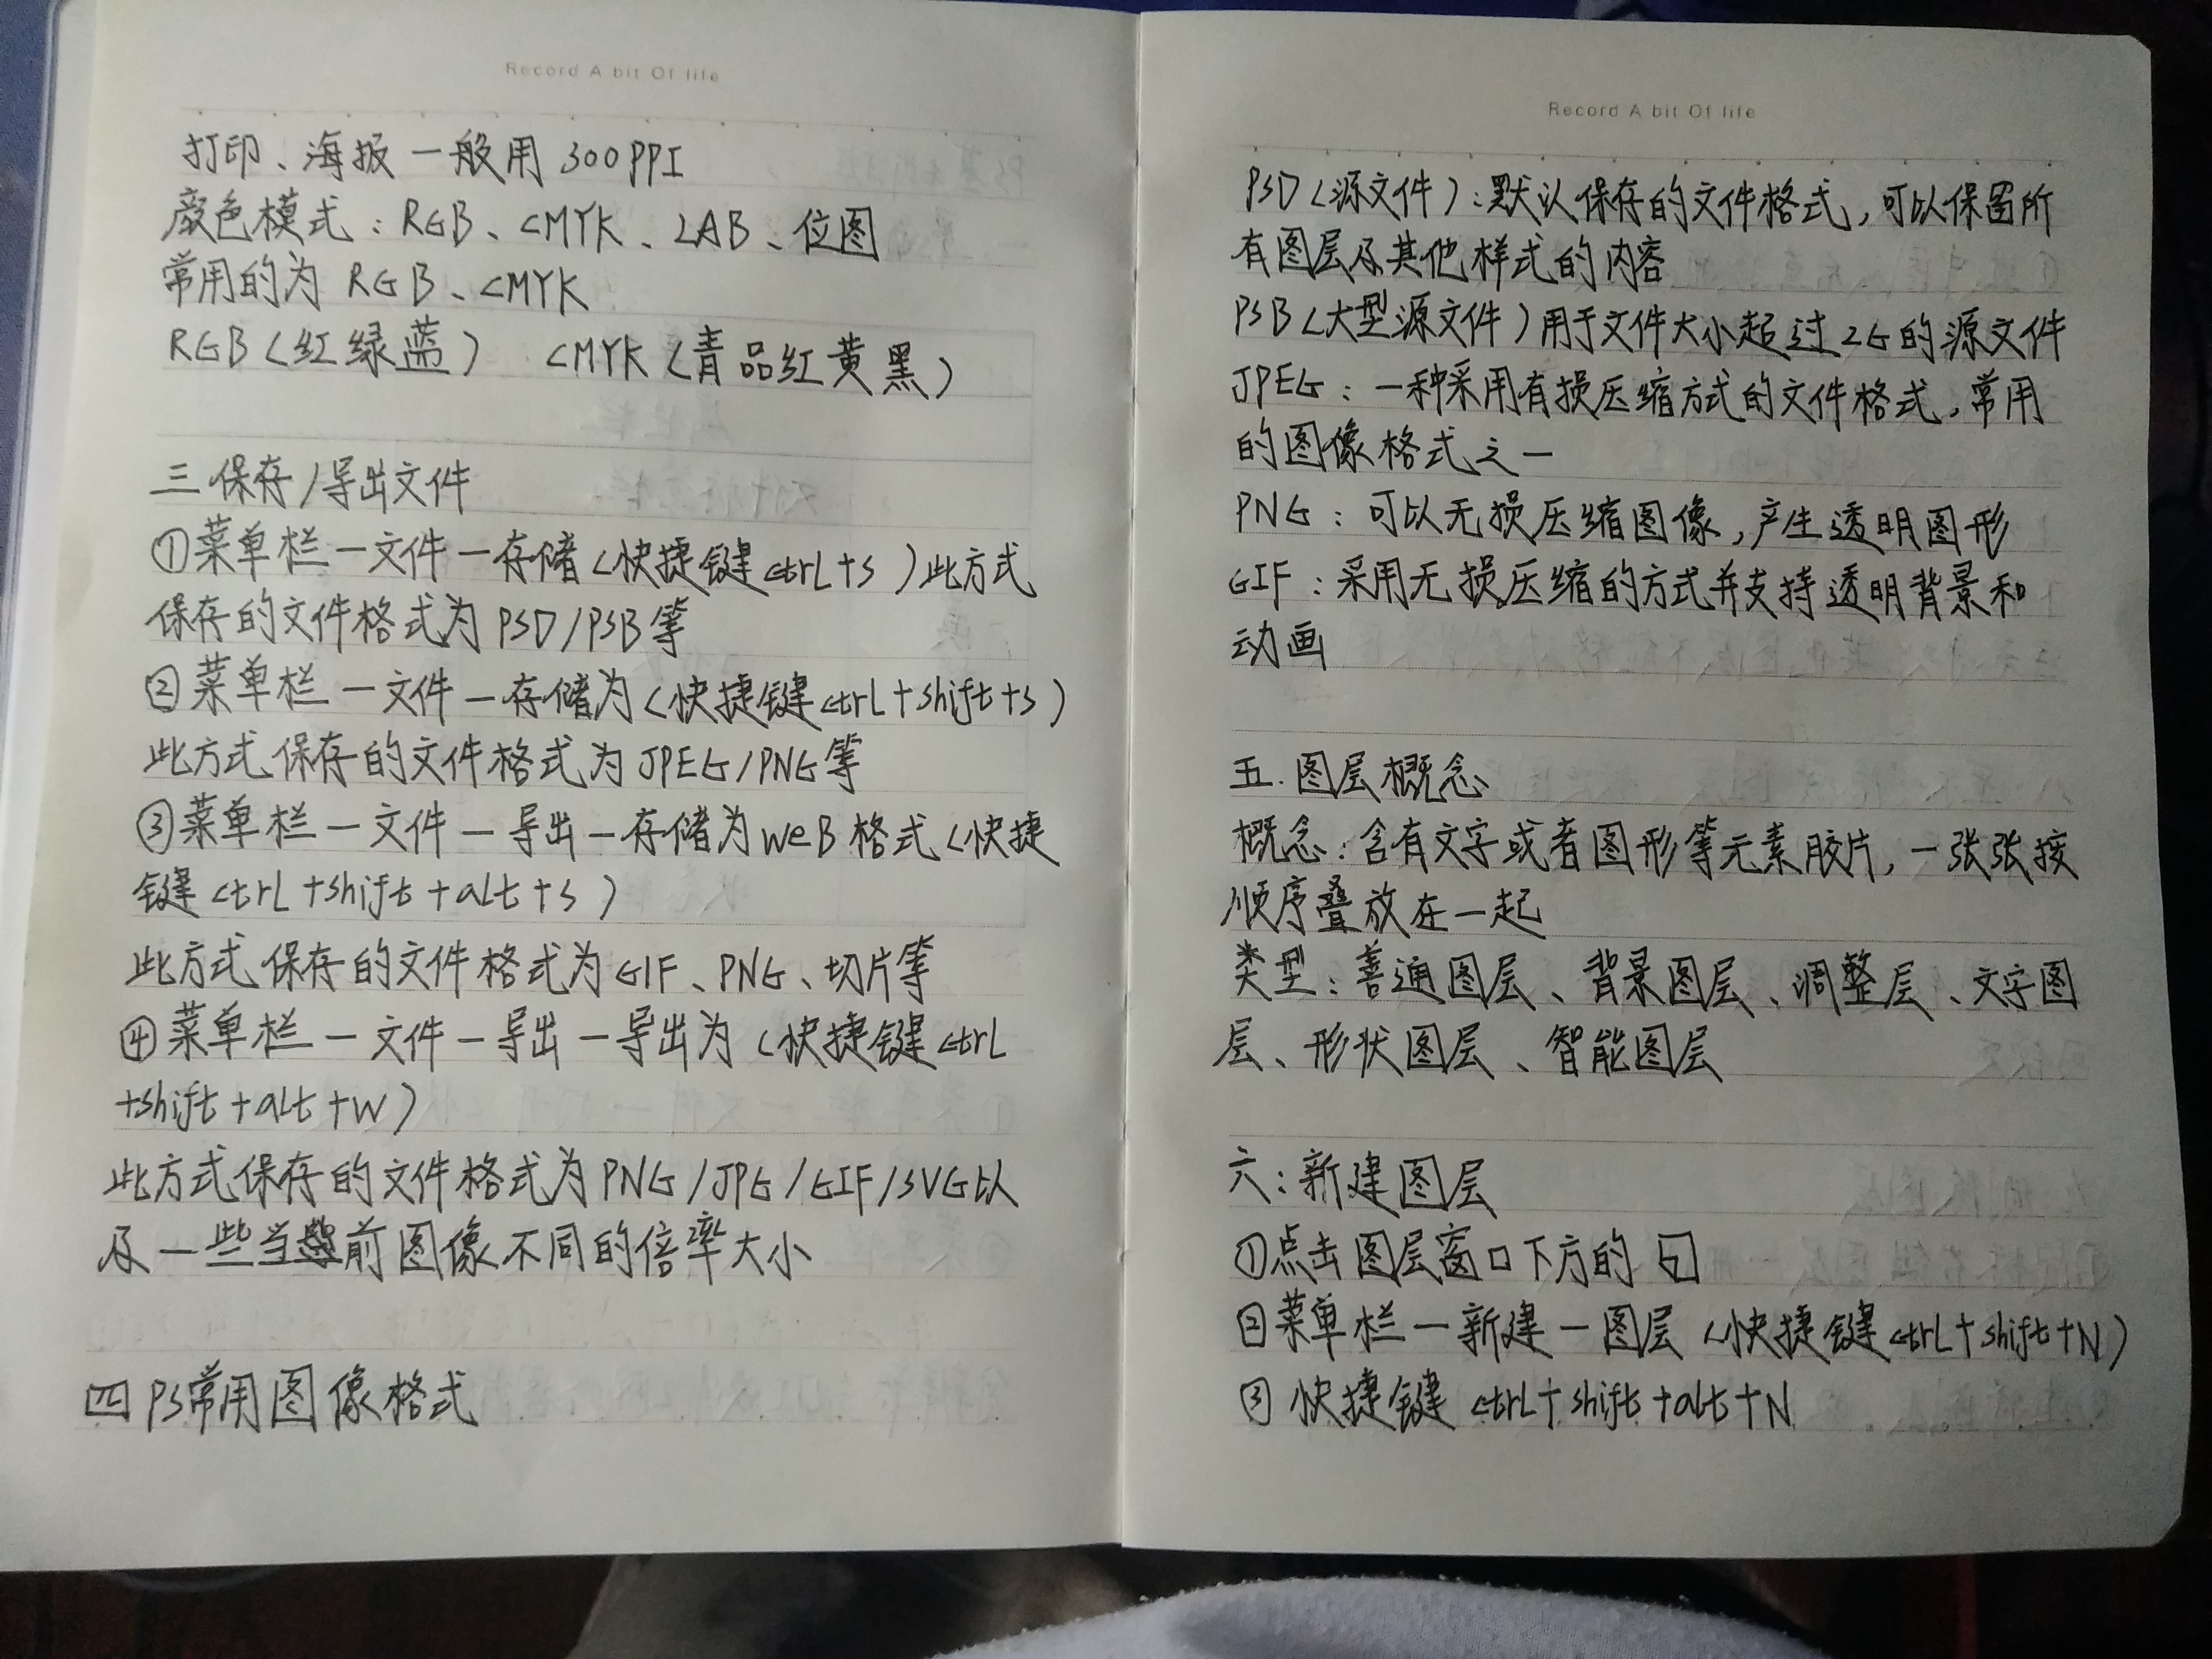 Record A bit Of life
打印、海报一般用300PPI
颜色模式：RGB、CMYK、LAB、位图
常用的为RGB、CMYK
RGB（红绿蓝） CMYK（青品红黄黑）
三 保存/导出文件
①菜单栏一文件一存储（快捷键ctrL+s）此方式
保存的文件格式为PSD/PSB等
②菜单栏一文件一存储为（快捷键ctrL+shift+s）
此方式保存的文件格式为JPEG/PNG等
③菜单栏一文件一导出一存储为weB格式（快捷
键ctrL+shift+aLt+s）
此方式保存的文件格式为GIF、PNG、切片等
④菜单栏一文件一导出一导出为（快捷键ctrL
+shift+aLt+W）
此方式保存的文件格式为PNG/JPG/GIF/SVG以
及一些当前图像不同的倍率大小
四 PS常用图像格式
Record A bit Of life
PSD（源文件）：默认保存的文件格式，可以保留所
有图层及其他样式的内容
PSB（大型源文件）用于文件大小超过2G的源文件
JPEG：一种采用有损压缩方式的文件格式，常用
的图像格式之一
PNG：可以无损压缩图像，产生透明图形
GIF：采用无损压缩的方式并支持透明背景和
动画
五.图层概念
概念：含有文字或者图形等元素胶片，一张张按
顺序叠放在一起
类型：普通图层、背景图层、调整层、文字图
层、形状图层、智能图层
六：新建图层
①点击图层窗口下方的
②菜单栏一新建一图层（快捷键ctrL+shift+N）
③快捷键ctrL+shift+aLt+N